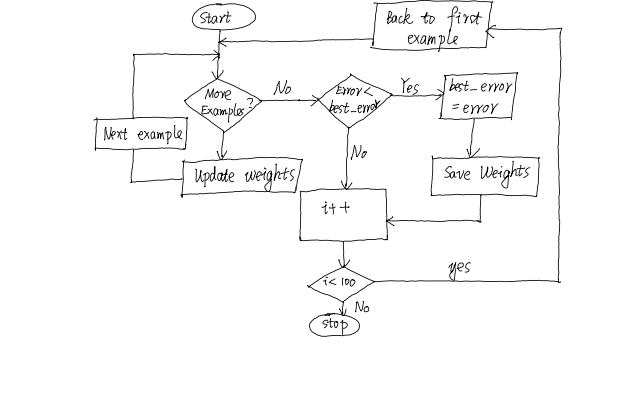 Start
Back to first
example
More
Examples?
No
Error<
best_error
Yes
best_error
=error
Next example
Update weights
No
Save Weights
i++
i<100
yes
No
stop